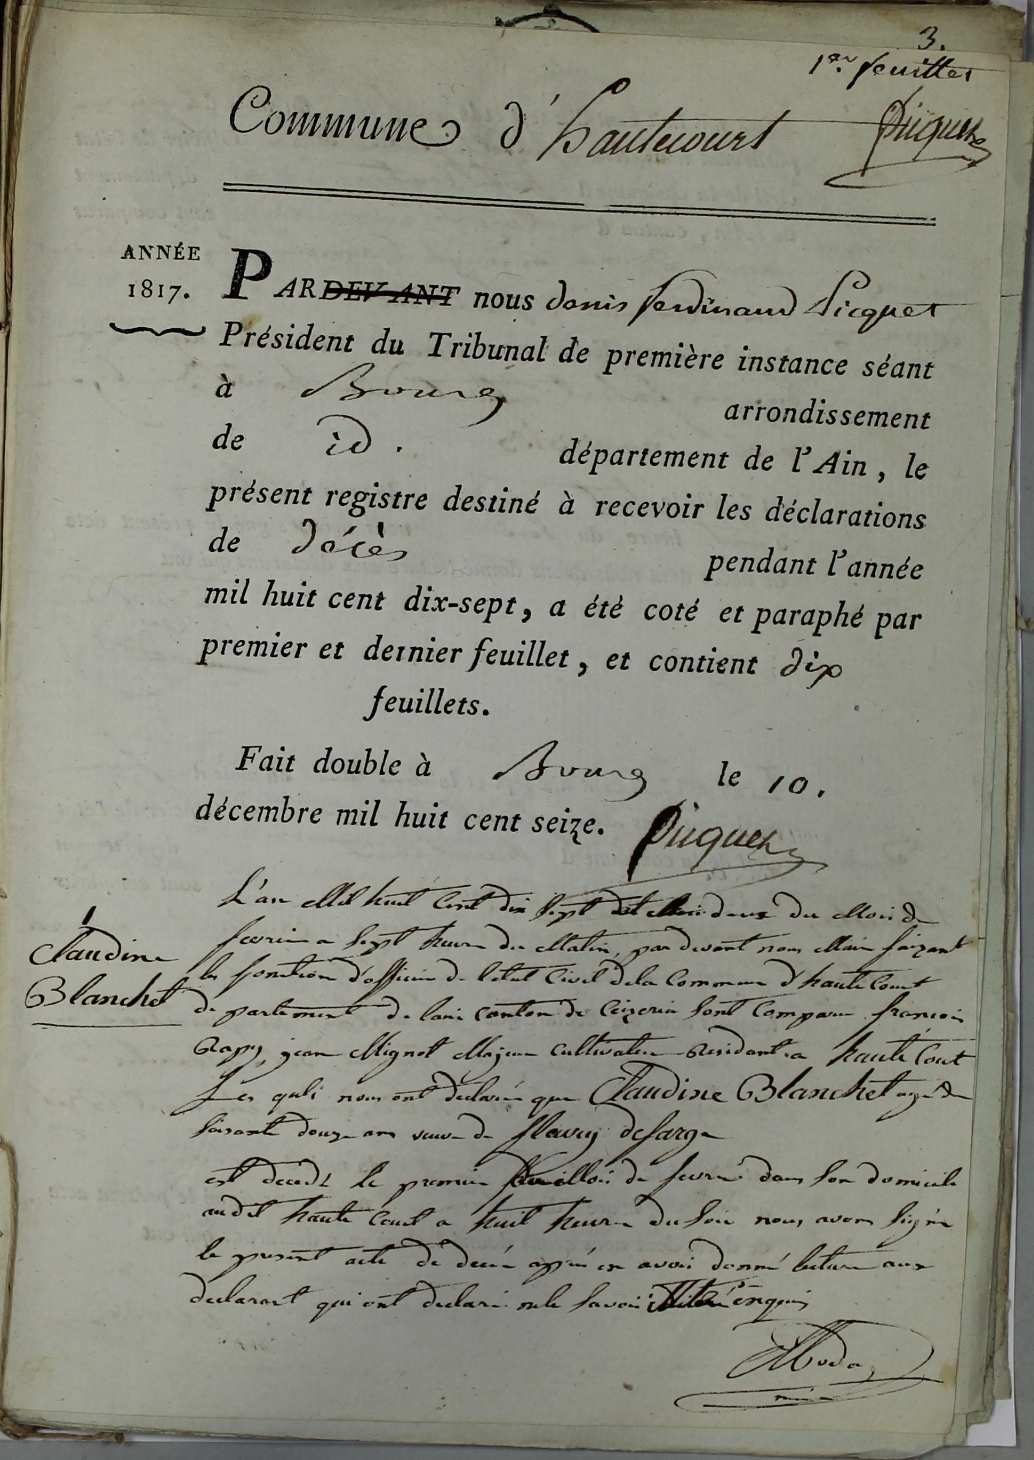 3.
1er feuillet
Commune d'hautecourt Picquet
ANNÉE
1817.
PARDEVANT nous denis ferdinand Picquet
Président du Tribunal de première instance séant
à Bourg arrondissement
de id. département de l'Ain, le
présent registre destiné à recevoir les déclarations
de décès pendant l'année
mil huit cent dix-sept, a été coté et paraphé par
premier et dernier feuillet, et contient dix
feuillets.
Fait double à Bourg le 10.
décembre mil huit cent seize. Picquet
1
Claudine
Blanchet
L'an Mil huit Cent dix Sept deux du Mois de
fevrie a Sept heure du Matin, par devant nous Maire faizant
les fonction d'officier de l'etat Civil de la Commune d'haute Court
departement de lain canton de Ceizeria sont Comparu françois
Ragy, jean Mignot Majeur cultivateur Residant a haute Court
Les quels nous ont declaré que Claudine Blanchet agé de
soisant douze ans veuve de fleury desarge
est decedé le premier de fevrié dans son domicile
audit haute Court a huit heure du Soir nous avons Signé
le present acte de décés appré en avoir donné lecture aux
declarant qui ont declaré ne le Savoir enquis